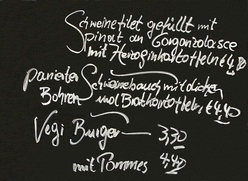 Schweinefilet gefüllt mit
Spinat an Gorgonzolasce
mit Herzoginkartoffeln € 4,
panierter Schweinebauch mit dicken
Bohnen und Bratkartoffeln, € 4,40
Vegi Burger — 3,30
mit Pommes 4,40